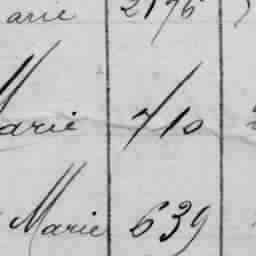 arie 2176
Marie 710
Marie 639